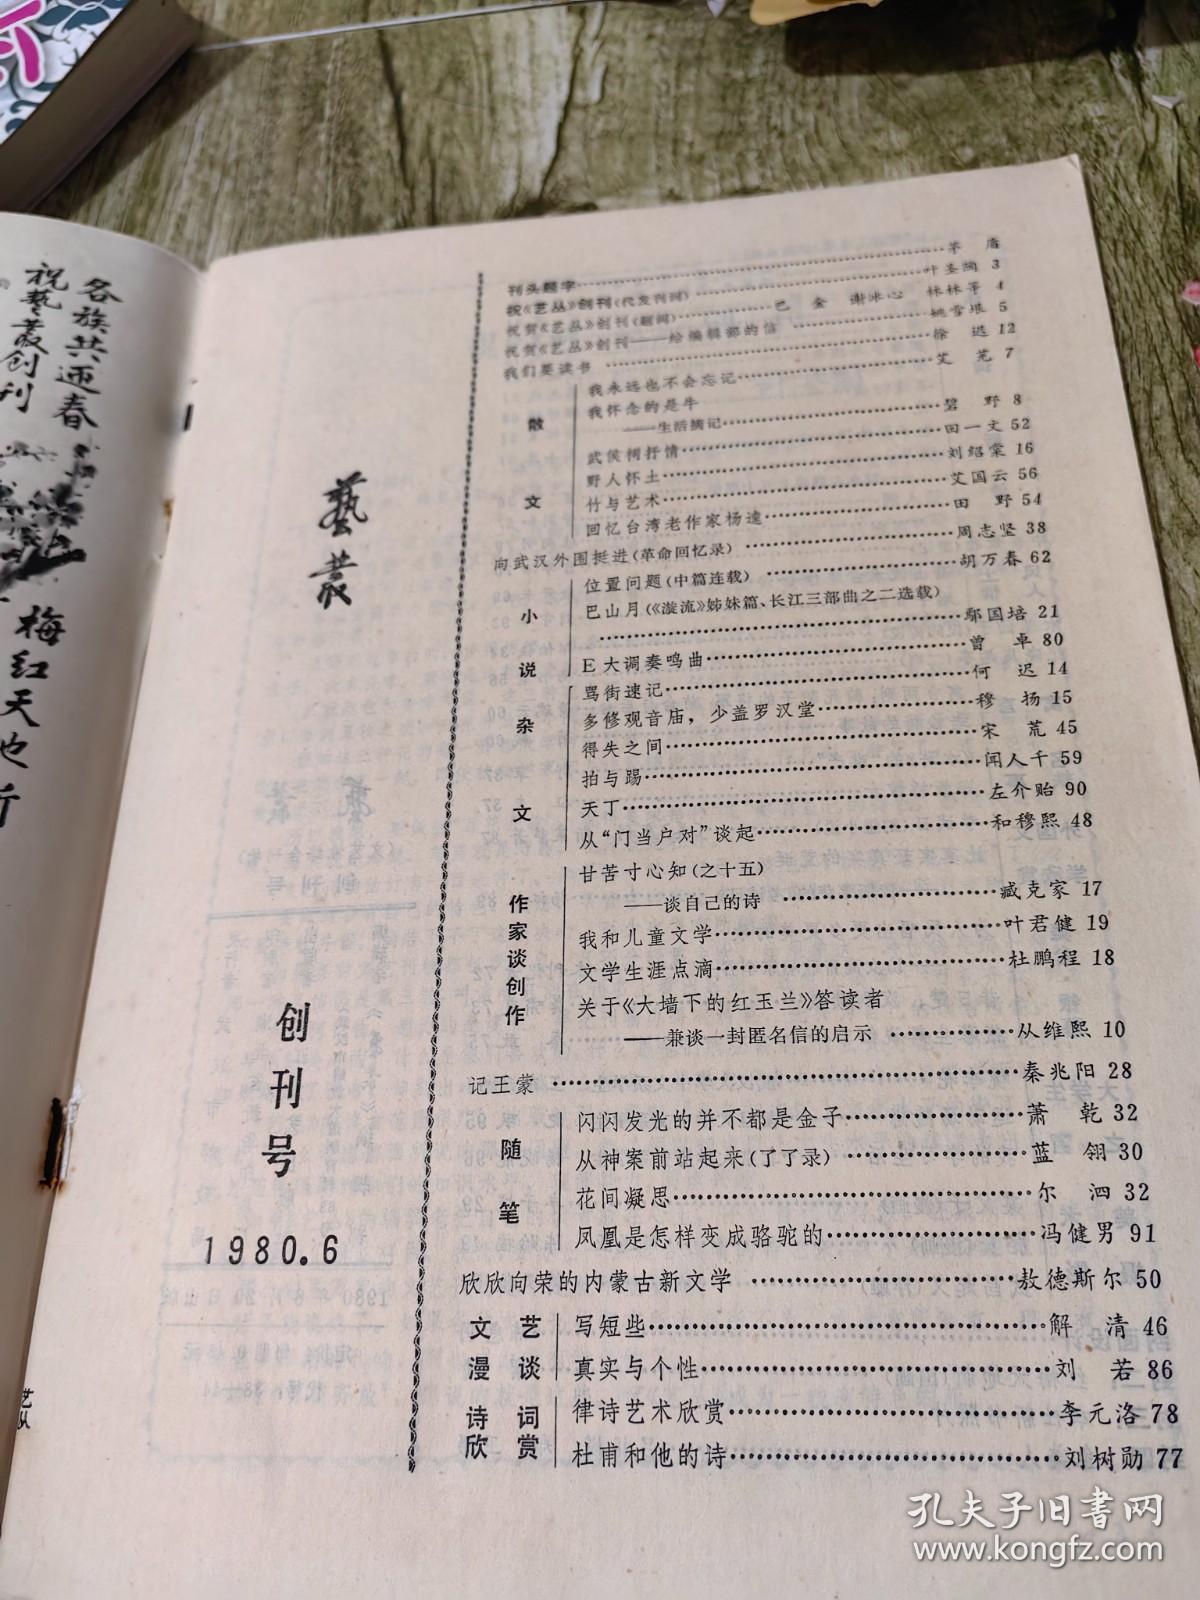 各族共迎春
祝藝叢创刊
梅红天也新
藝叢
创刊号
1980.6
刊头题字……茅 盾
祝《艺丛》创刊(代发刊词)……叶圣陶 3
祝贺《艺丛》创刊(题词)……巴 金 谢冰心 林林等 4
祝贺《艺丛》创刊——给编辑部的信……姚雪垠 5
我们要读书……徐 迟 12
散文
我永远也不会忘记……艾 芜 7
我怀念的是牛
——生活摘记……碧 野 8
武侯祠抒情……田一文 52
野人怀土……刘绍棠 16
竹与艺术……艾国云 56
回忆台湾老作家杨逵……田 野 54
向武汉外围挺进(革命回忆录)……周志坚 38
小说
位置问题(中篇连载)……胡万春 62
巴山月(《漩流》姊妹篇、长江三部曲之二选载)
……鄢国培 21
E大调奏鸣曲……曾 卓 80
杂文
骂街速记……何 迟 14
多修观音庙，少盖罗汉堂……穆 扬 15
得失之间……宋 荒 45
拍与踢……闻人千 59
天丁……左介贻 90
从“门当户对”谈起……和穆熙 48
作家谈创作
甘苦寸心知(之十五)
——谈自己的诗……臧克家 17
我和儿童文学……叶君健 19
文学生涯点滴……杜鹏程 18
关于《大墙下的红玉兰》答读者
——兼谈一封匿名信的启示……从维熙 10
记王蒙……秦兆阳 28
随笔
闪闪发光的并不都是金子……萧 乾 32
从神案前站起来(了了录)……蓝 翎 30
花间凝思……尔 泗 32
凤凰是怎样变成骆驼的……冯健男 91
欣欣向荣的内蒙古新文学……敖德斯尔 50
文艺漫谈
写短些……解 清 46
真实与个性……刘 若 86
诗词欣赏
律诗艺术欣赏……李元洛 78
杜甫和他的诗……刘树勋 77
孔夫子旧书网
www.kongfz.com